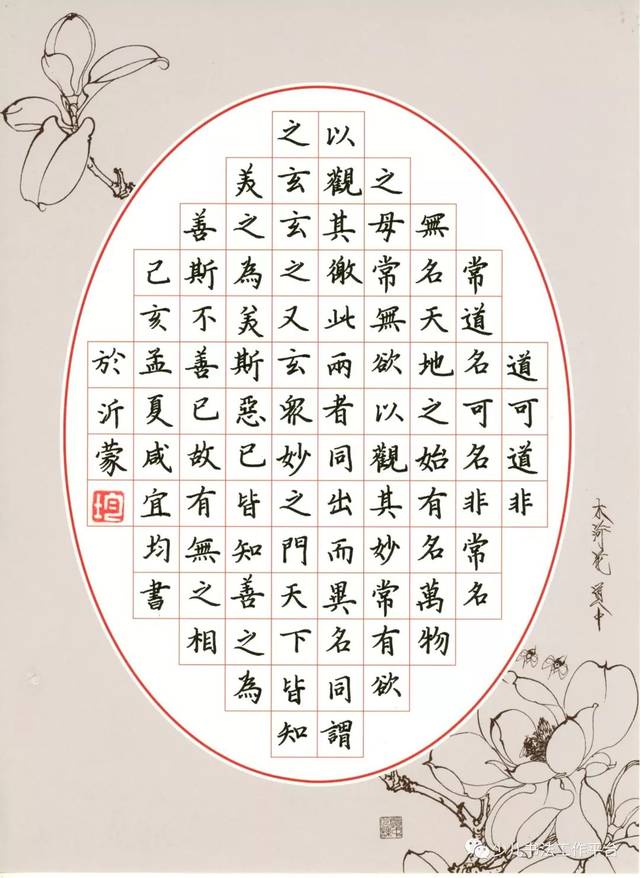 道可道非
常道名可名非常名
無名天地之始有名萬物
之母常無欲以觀其妙常有欲
以觀其徼此兩者同出而異名同謂
之玄玄之又玄眾妙之門天下皆知
美之為美斯惡已皆知善之為
善斯不善已故有無之相
己亥孟夏咸宜均書
於沂蒙
少儿书法工作平台